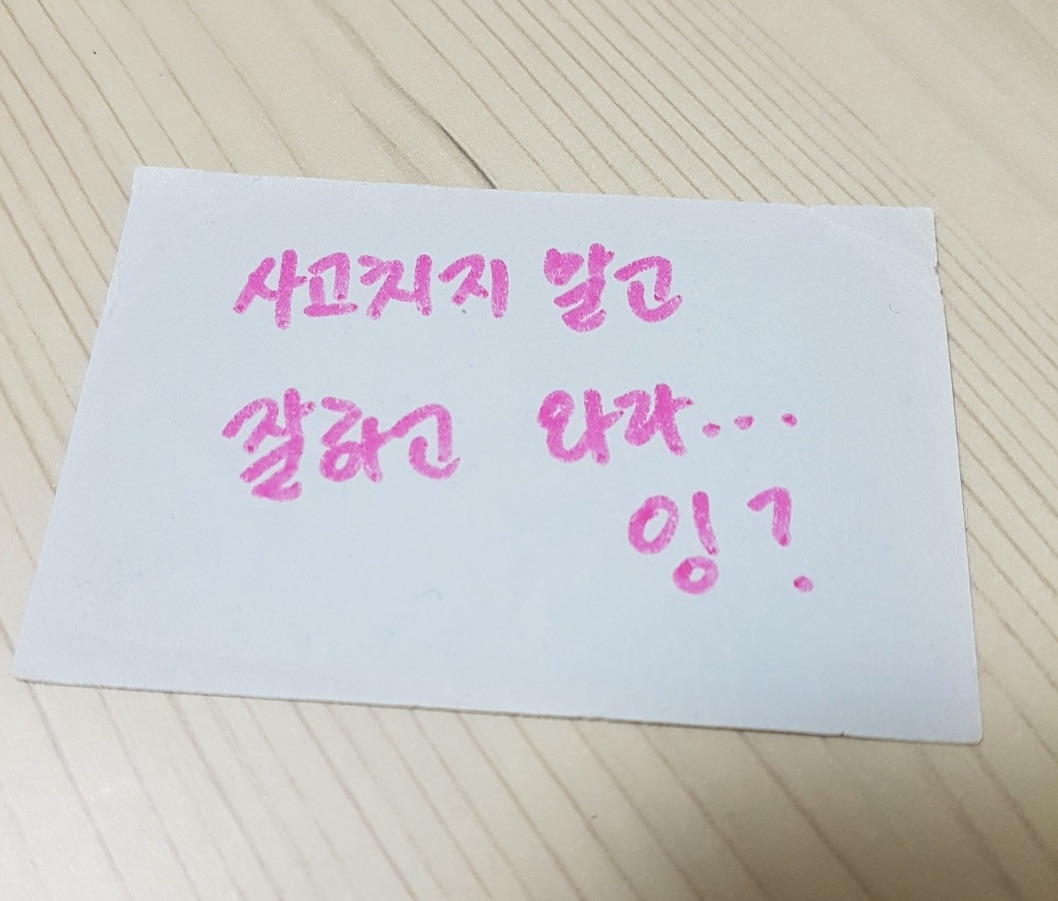 사고치지 말고
잘하고 와라...
잉?